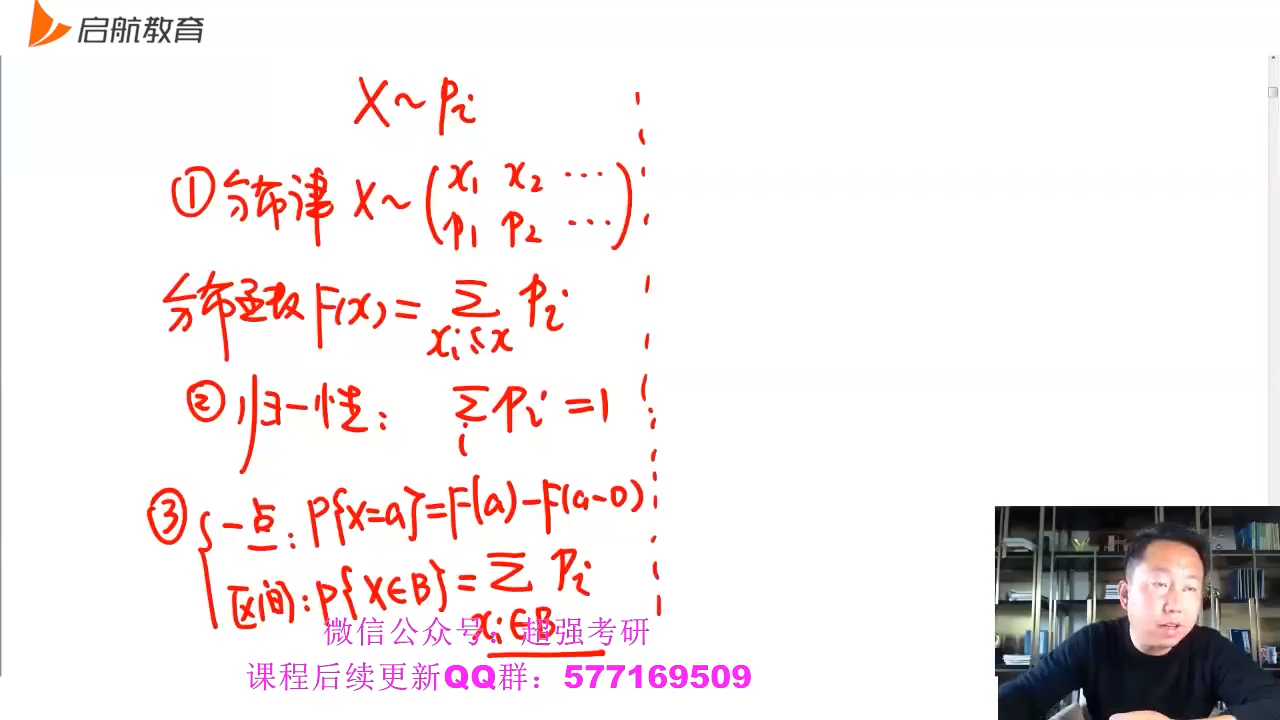 启航教育
X ~ pi
① 分布律 X ~ (x1 x2 ⋯
p1 p2 ⋯)
分布函数 F(x) = Σ pi
xi ≤ x
② 归一性: Σ pi = 1
i
③ { 一点: P{X=a} = F(a) - F(a-0)
区间: P{X∈B} = Σ pi
xi ∈ B
微信公众号: 超强考研
课程后续更新QQ群: 577169509